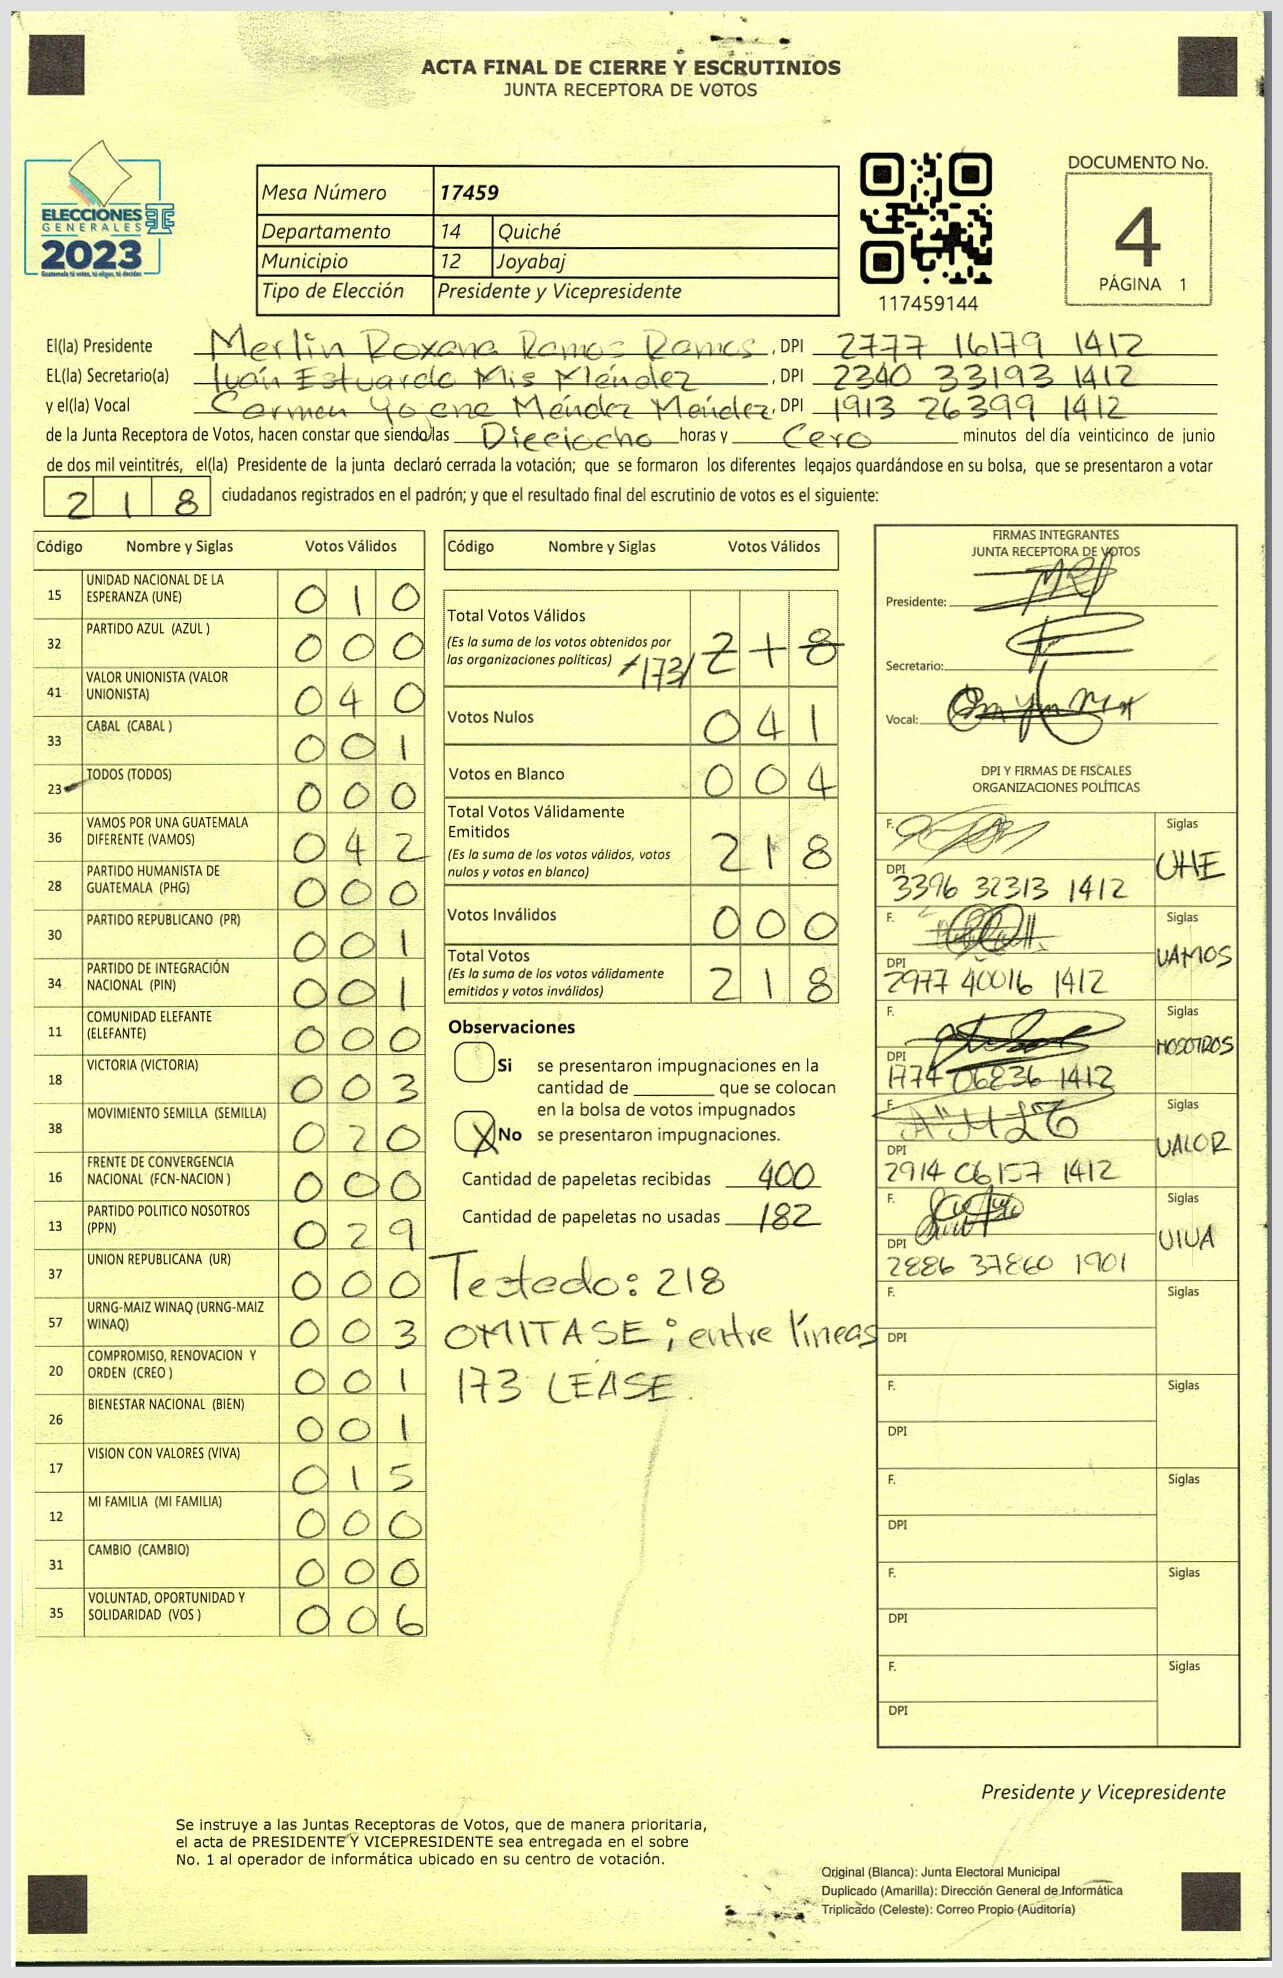 ACTA FINAL DE CIERRE Y ESCRUTINIOS
JUNTA RECEPTORA DE VOTOS
ELECCIONES
GENERALES
2023
Guatemala tú votas, tú eliges, tú decides
Mesa Número 17459
Departamento 14 Quiché
Municipio 12 Joyabaj
Tipo de Elección Presidente y Vicepresidente
117459144
DOCUMENTO No.
4
PÁGINA 1
El(la) Presidente Merlin Roxana Ramos Ramos, DPI 2777 16179 1412
EL(la) Secretario(a) Iván Estuardo Mis Méndez, DPI 2340 33193 1412
y el(la) Vocal Carmen Méndez Méndez, DPI 1913 26399 1412
de la Junta Receptora de Votos, hacen constar que siendo las Dieciocho horas y Cero minutos del día veinticinco de junio
de dos mil veintitrés, el(la) Presidente de la junta declaró cerrada la votación; que se formaron los diferentes legajos guardándose en su bolsa, que se presentaron a votar
218 ciudadanos registrados en el padrón; y que el resultado final del escrutinio de votos es el siguiente:
Código Nombre y Siglas Votos Válidos
15 UNIDAD NACIONAL DE LA ESPERANZA (UNE) 010
32 PARTIDO AZUL (AZUL ) 000
41 VALOR UNIONISTA (VALOR UNIONISTA) 040
33 CABAL (CABAL ) 001
23 TODOS (TODOS) 000
36 VAMOS POR UNA GUATEMALA DIFERENTE (VAMOS) 042
28 PARTIDO HUMANISTA DE GUATEMALA (PHG) 000
30 PARTIDO REPUBLICANO (PR) 001
34 PARTIDO DE INTEGRACIÓN NACIONAL (PIN) 001
11 COMUNIDAD ELEFANTE (ELEFANTE) 000
18 VICTORIA (VICTORIA) 003
38 MOVIMIENTO SEMILLA (SEMILLA) 020
16 FRENTE DE CONVERGENCIA NACIONAL (FCN-NACION ) 000
13 PARTIDO POLITICO NOSOTROS (PPN) 029
37 UNION REPUBLICANA (UR) 000
57 URNG-MAIZ WINAQ (URNG-MAIZ WINAQ) 003
20 COMPROMISO, RENOVACION Y ORDEN (CREO ) 001
26 BIENESTAR NACIONAL (BIEN) 001
17 VISION CON VALORES (VIVA) 015
12 MI FAMILIA (MI FAMILIA) 000
31 CAMBIO (CAMBIO) 000
35 VOLUNTAD, OPORTUNIDAD Y SOLIDARIDAD (VOS ) 006
Código Nombre y Siglas Votos Válidos
Total Votos Válidos
(Es la suma de los votos obtenidos por
las organizaciones políticas) /173/ 218
Votos Nulos 041
Votos en Blanco 004
Total Votos Válidamente
Emitidos
(Es la suma de los votos válidos, votos
nulos y votos en blanco) 218
Votos Inválidos 000
Total Votos
(Es la suma de los votos válidamente
emitidos y votos inválidos) 218
Observaciones
Si se presentaron impugnaciones en la
cantidad de ________ que se colocan
en la bolsa de votos impugnados
X No se presentaron impugnaciones.
Cantidad de papeletas recibidas 400
Cantidad de papeletas no usadas 182
Testado: 218
OMITASE; entre líneas
173 LEASE.
FIRMAS INTEGRANTES
JUNTA RECEPTORA DE VOTOS
Presidente:
Secretario:
Vocal:
DPI Y FIRMAS DE FISCALES
ORGANIZACIONES POLÍTICAS
F. Siglas
DPI 3396 32313 1412 UNE
F. Siglas
DPI 2977 40016 1412 VAMOS
F. Siglas
DPI 1774 06836 1412 NOSOTROS
F. Siglas
DPI 2914 06157 1412 VALOR
F. Siglas
DPI 2886 37860 1901 VIVA
F. Siglas
DPI
F. Siglas
DPI
F. Siglas
DPI
F. Siglas
DPI
F. Siglas
DPI
Presidente y Vicepresidente
Se instruye a las Juntas Receptoras de Votos, que de manera prioritaria,
el acta de PRESIDENTE Y VICEPRESIDENTE sea entregada en el sobre
No. 1 al operador de informática ubicado en su centro de votación.
Original (Blanca): Junta Electoral Municipal
Duplicado (Amarilla): Dirección General de Informática
Triplicado (Celeste): Correo Propio (Auditoría)